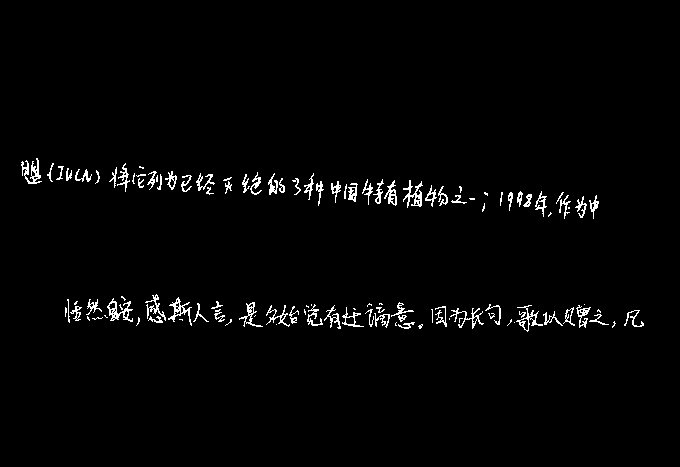 盟(IUCN)将它列为已经灭绝的3种中国特有植物之一；1998年,作为中
恬然自安,感斯人言,是夕始觉有迁谪意。因为长句,歌以赠之,凡